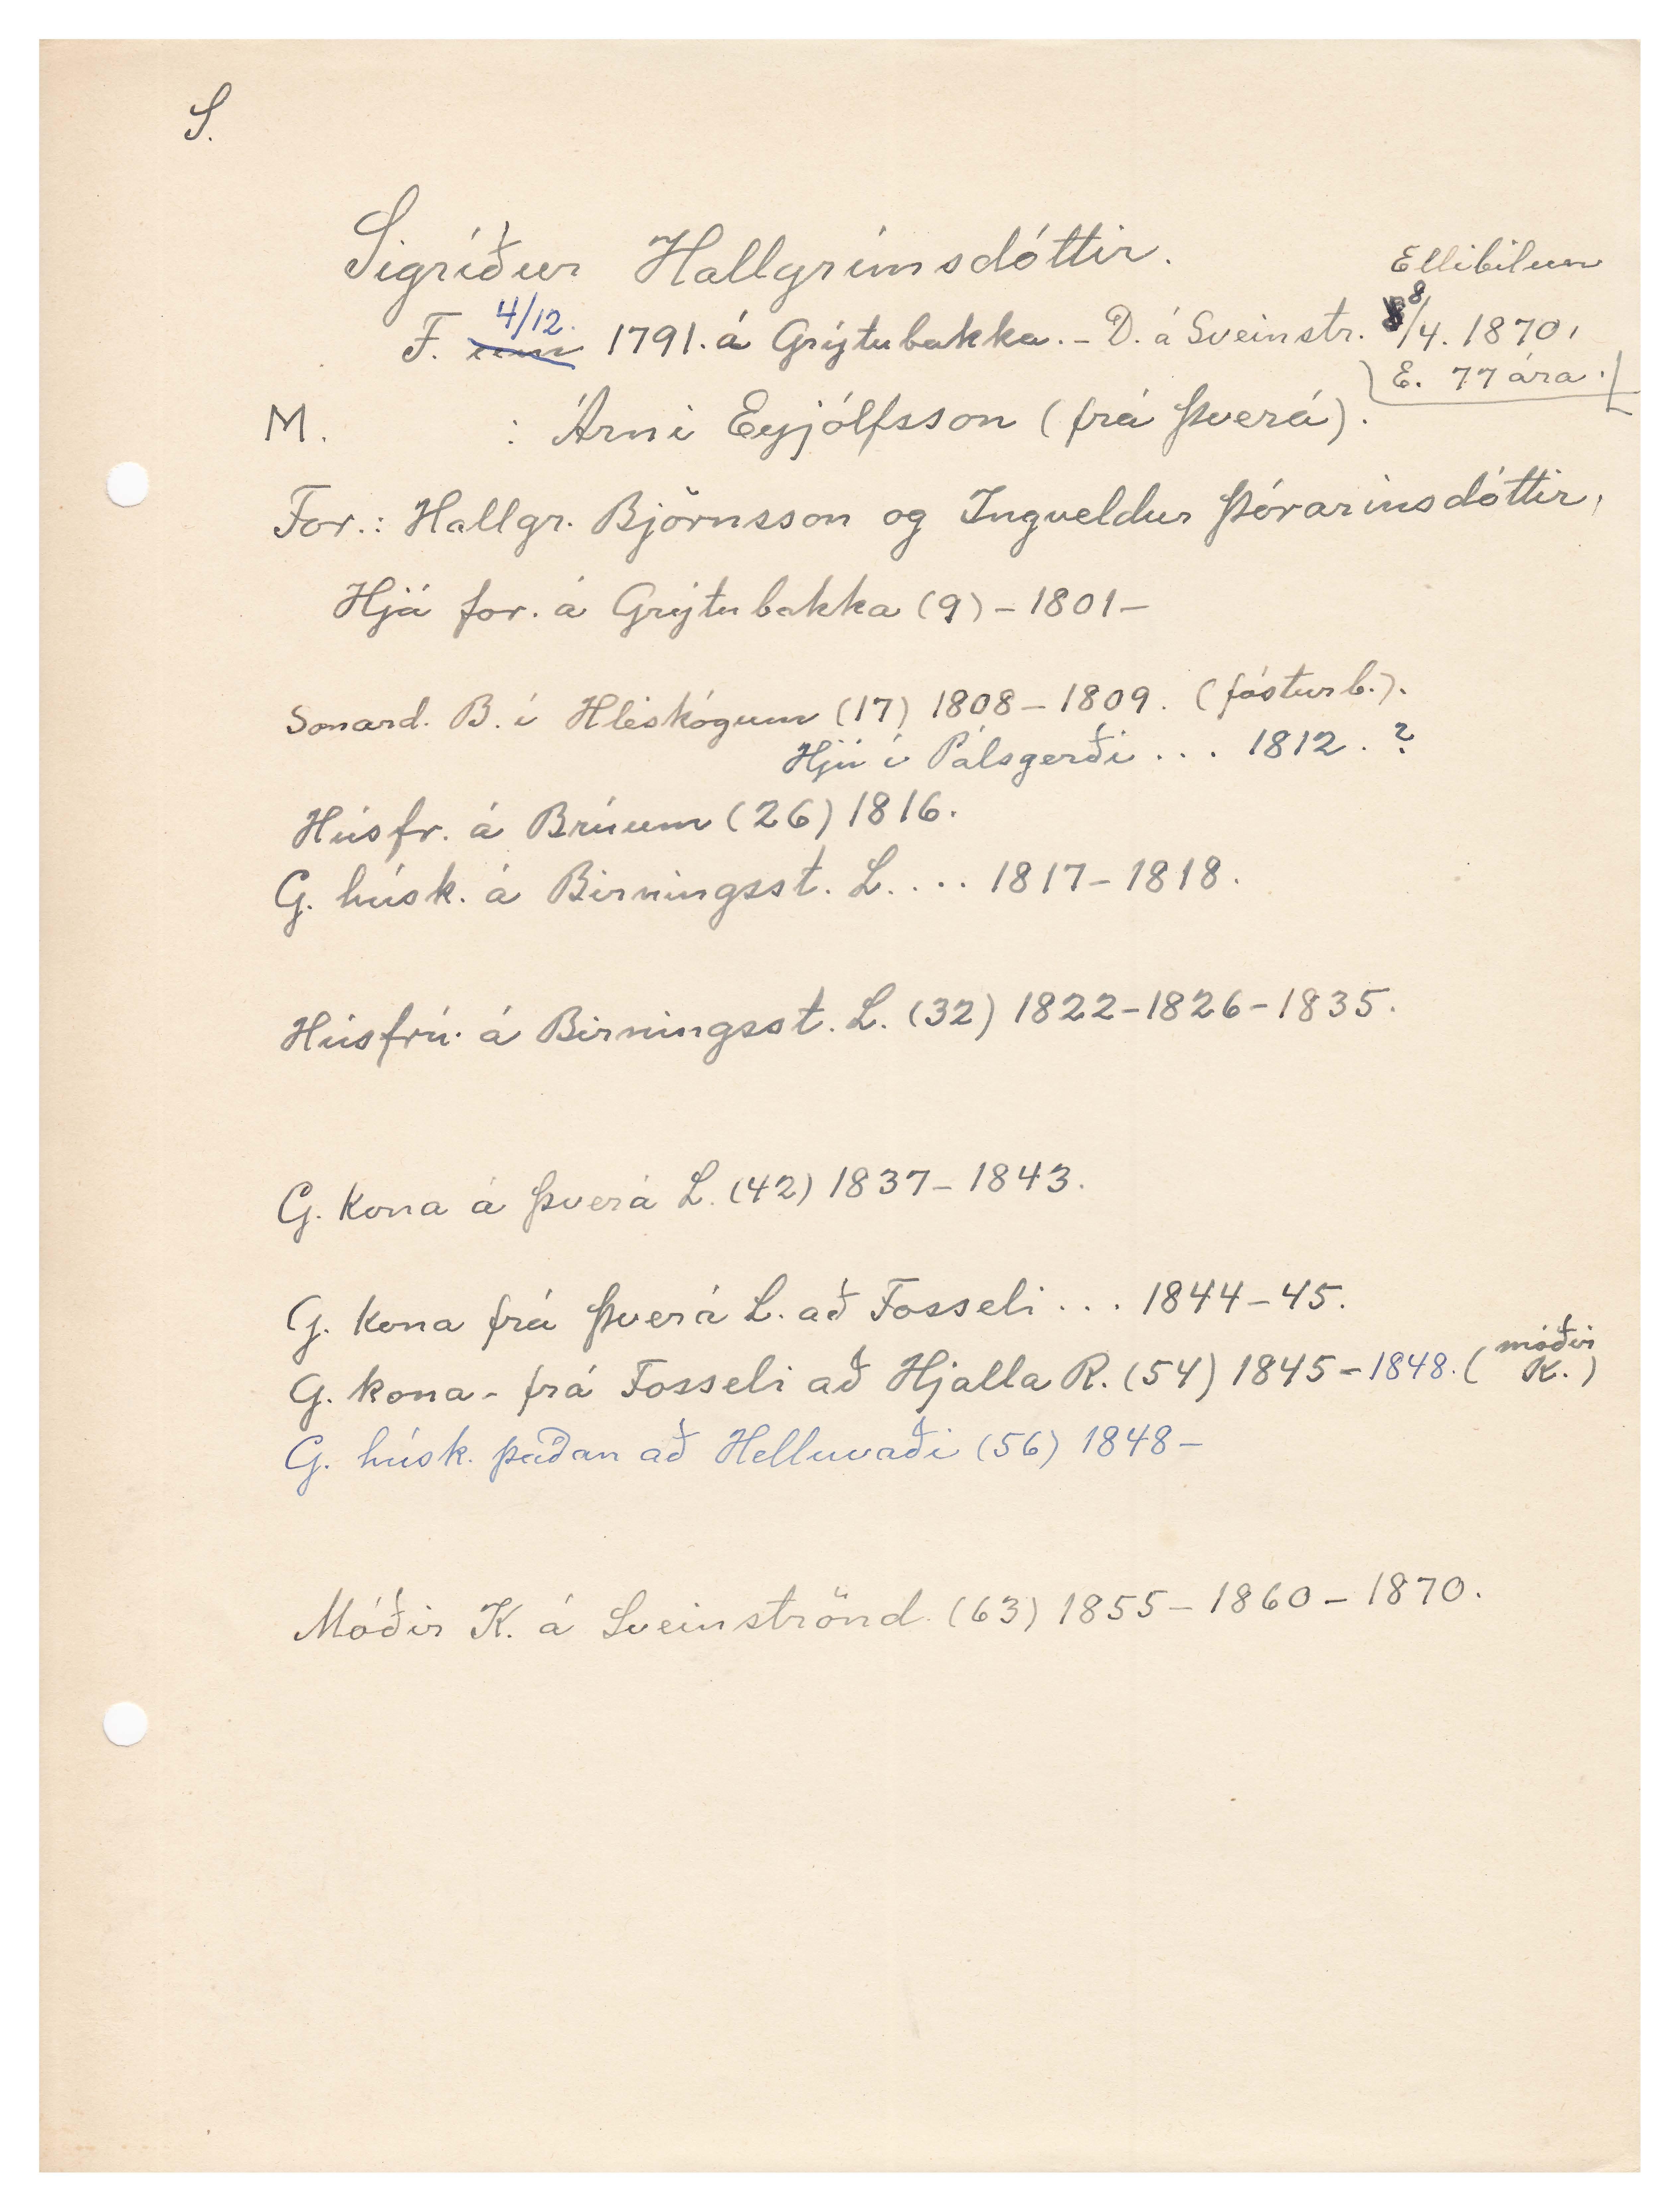 S.
Sigríður Hallgrímsdóttir.
Ellibilun
F. 4/12. um 1791. á Grýtubakka. - D. á Sveinstr. 8/4. 1870.
E. 77 ára.
M. : Árni Eyjólfsson (frá Þverá).
For.: Hallgr. Björnsson og Ingveldur Þórarinsdóttir.
Hjá for. á Grýtubakka (9) - 1801 -
Sonard. B. í Hléskógum (17) 1808 - 1809. (fósturb.).
Hjú í Pálsgerði . . . 1812. ?
Húsfr. á Brúum (26) 1816.
G. húsk. á Birningsst. L. . . . 1817 - 1818.
Húsfrú. á Birningsst. L. (32) 1822 - 1826 - 1835.
G. kona á Þverá L. (42) 1837 - 1843.
G. kona frá Þverá L. að Fosseli . . . 1844 - 45.
G. kona - frá Fosseli að Hjalla R. (54) 1845 - 1848. ( móðir K. )
G. húsk. þaðan að Helluvaði (56) 1848 -
Móðir K. á Sveinströnd. (63) 1855 - 1860 - 1870.